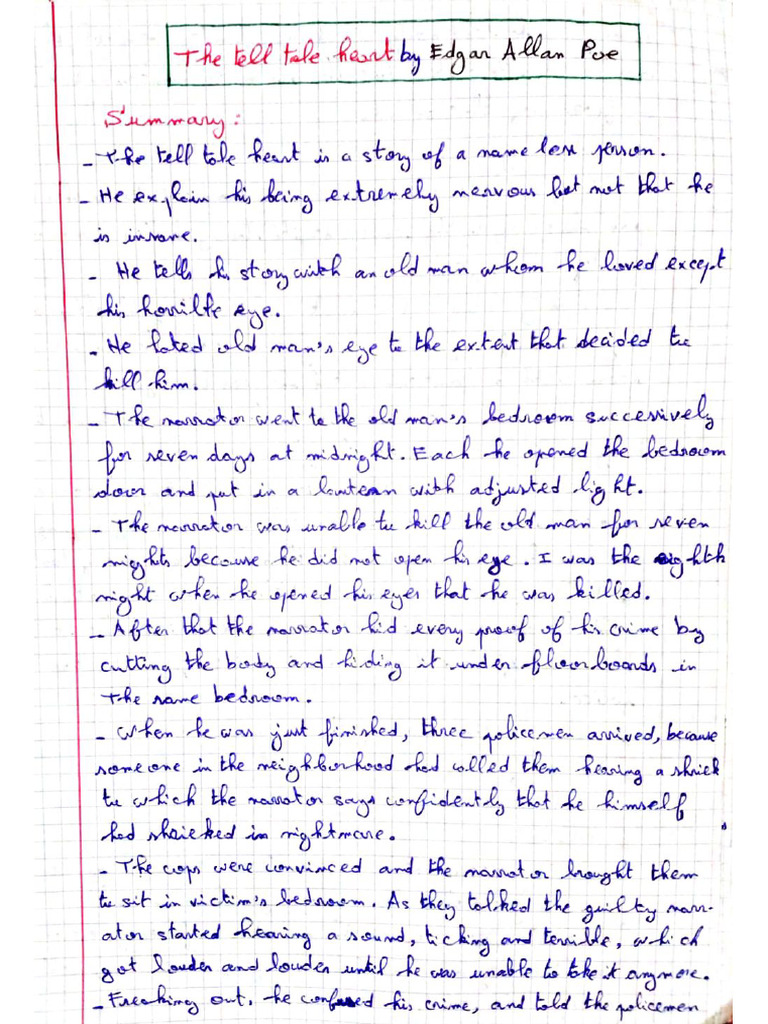 The tell tale heart by Edgar Allan Poe
Summary:
- The tell tale heart is a story of a name less person.
- He explain his being extremely nervous but not that he
is insane.
- He tells his story with an old man whom he loved except
his horrible eye.
- He hated old man's eye to the extent that decided to
kill him.
- The narrator went to the old man's bedroom successively
for seven days at midnight. Each he opened the bedroom
door and put in a lantern with adjusted light.
- The narrator was unable to kill the old man for seven
nights because he did not open his eye. I was the eighth
night when he opened his eyes that he was killed.
- After that the narrator hid every proof of his crime by
cutting the body and hiding it under floorboards in
the same bedroom.
- When he was just finished, three policemen arrived, because
someone in the neighborhood had called them hearing a shriek
to which the narrator says confidently that he himself
had shrieked in nightmare.
- The cops were convinced and the narrator brought them
to sit in victim's bedroom. As they talked the guilty narr-
ator started hearing a sound, ticking and terrible, which
got louder and louder until he was unable to take it anymore.
- Freaking out, he confused his crime, and told the policemen